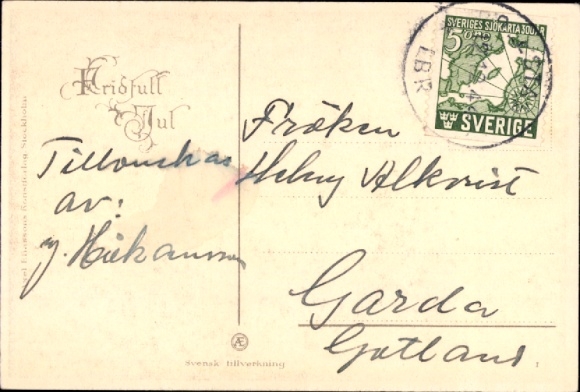 Fridfull
Jul
Tillönskas
av:
Håkansson
Fröken
Helny Alkvist
Garda
Gotland
SVERIGES SJÖKARTA 300 ÅR
5 ÖRE
SVERIGE
Svensk tillverkning
Axel Eliassons Konstförlag Stockholm
Æ
1